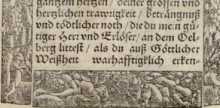 gantzem hertzen / deiner grossen vnd
hertzlichen trawrigkeit / beträngnuß
vnd tödtlicher noth / die du mein gü-
tiger Herr vnd Erlöser / an dem Oel-
berg littest / als du auß Göttlicher
Weißheit warhafftigklich erken-